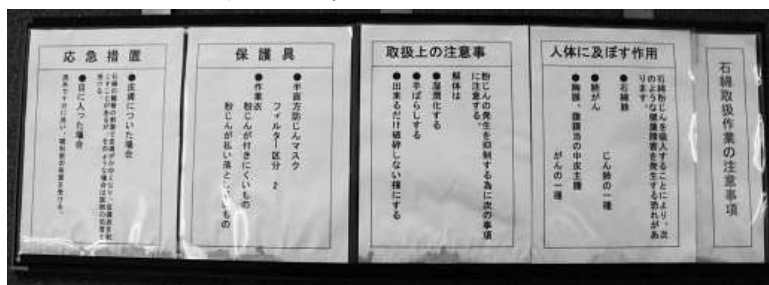 石綿取扱作業の注意事項
人体に及ぼす作用
石綿粉じんを吸入することにより、次
のような健康障害を発生する恐れがあ
ります。
●石綿肺　じん肺の一種
●肺がん
●胸膜、腹膜当の中皮主腫　がんの一種
取扱上の注意事
粉じんの発生を抑制する為に次の事項
に注意する。
解体は
●湿潤化する
●手ばらしする
●出来るだけ破砕しない様にする
保護具
●半面方防じんマスク
フィルター区分　2
●作業衣
粉じんが付きにくいもの
粉じんが払い落としやすいもの
応急措置
●皮膚についた場合
●目に入った場合